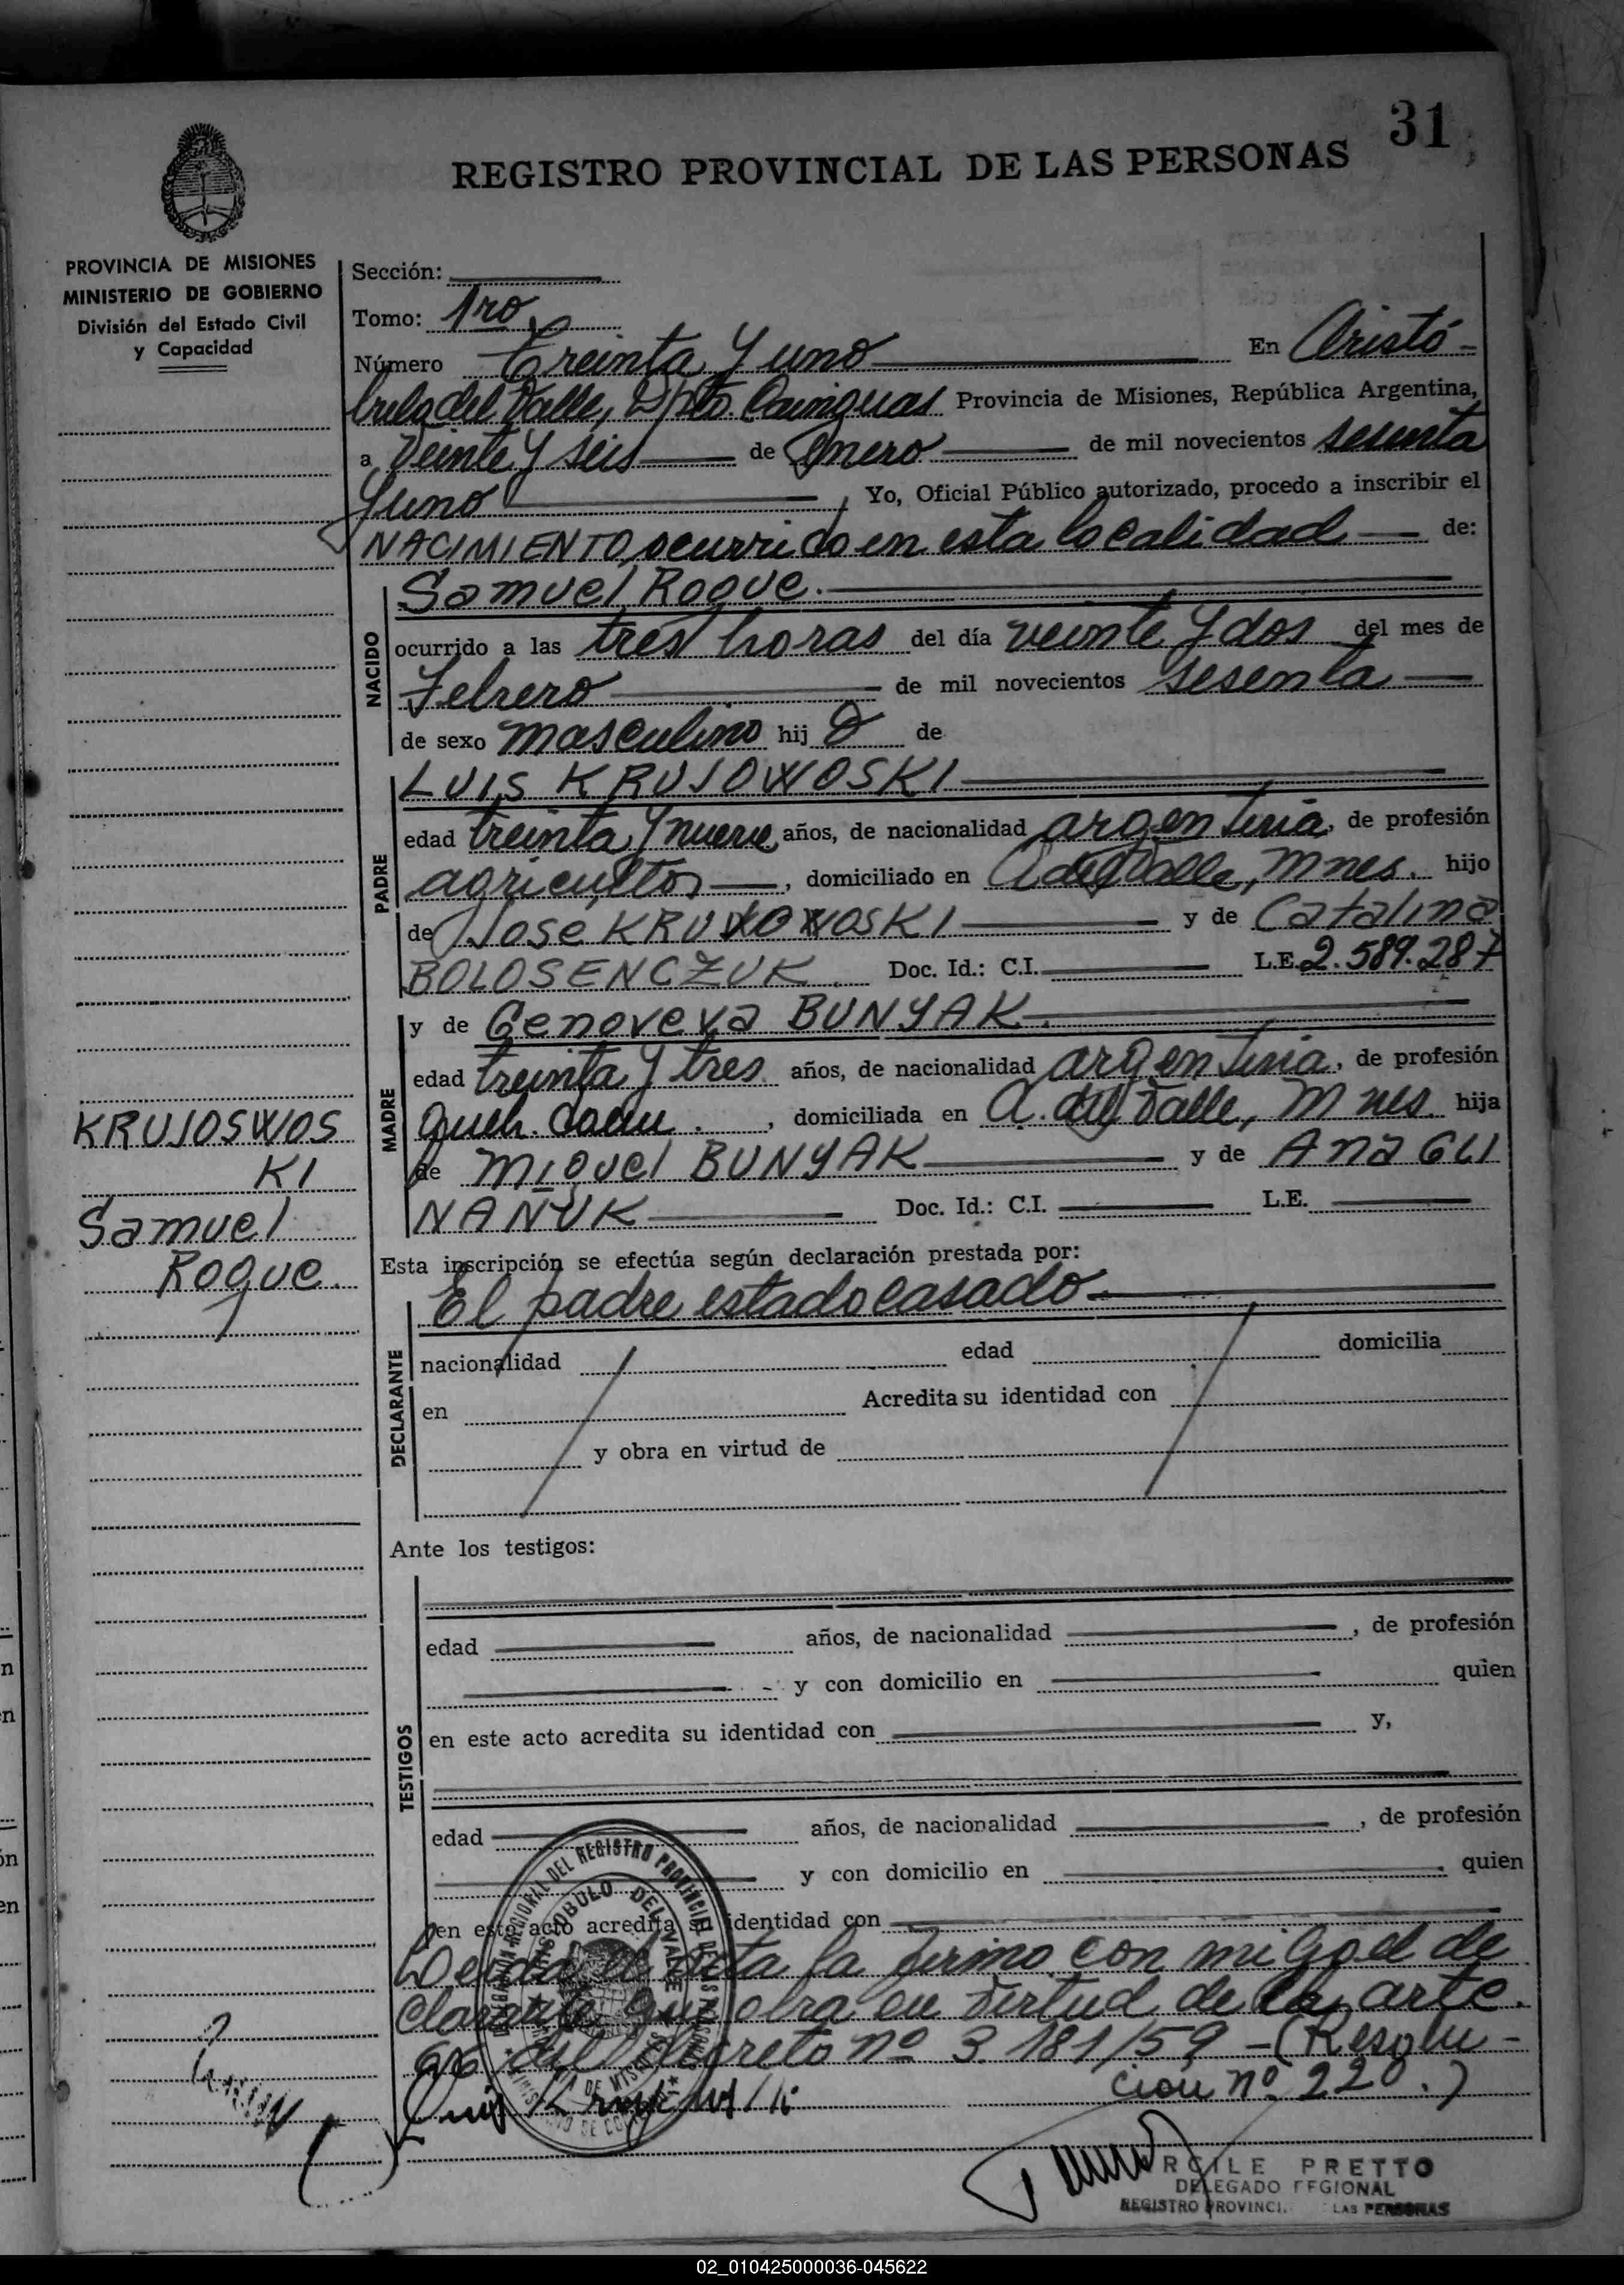 31
REGISTRO PROVINCIAL DE LAS PERSONAS
PROVINCIA DE MISIONES
MINISTERIO DE GOBIERNO
División del Estado Civil
y Capacidad
Sección:
Tomo: 1ro
Número Treinta y uno En Aristó-
bulo del Valle, Dpto. Cainguas Provincia de Misiones, República Argentina,
a Veinte y seis de Enero de mil novecientos sesenta
y uno, Yo, Oficial Público autorizado, procedo a inscribir el
NACIMIENTO, ocurrido en esta localidad de:
NACIDO
Samuel Roque.
ocurrido a las tres horas del día veinte y dos del mes de
Febrero de mil novecientos sesenta
de sexo masculino hij o de
PADRE
LUIS KRUJOWOSKI
edad treinta y nueve años, de nacionalidad argentina, de profesión
agricultor, domiciliado en A. del Valle, Mnes. hijo
de Jose KRUJOWOSKI y de Catalina
BOLOSENCZUK. Doc. Id.: C.I. L.E. 2.589.287
MADRE
y de Genoveva BUNYAK.
edad treinta y tres años, de nacionalidad argentina, de profesión
queh. dom., domiciliada en A. del Valle, Mnes. hija
de Miguel BUNYAK y de Ana GLI
NAÑUK Doc. Id.: C.I. L.E.
KRUJOSWOS
KI
Samuel
Roque.
Esta inscripción se efectúa según declaración prestada por:
DECLARANTE
El padre estado casado
nacionalidad edad domicilia
en Acredita su identidad con
y obra en virtud de
Ante los testigos:
TESTIGOS
edad años, de nacionalidad, de profesión
y con domicilio en quien
en este acto acredita su identidad con y,
edad años, de nacionalidad, de profesión
y con domicilio en quien
en este acto acredita identidad con
Leida el acta la firmo con migo el de
clarante que obra en virtud de la arte.
del Decreto nº 3.181/59 - (Resolu-
ción nº 220.)
Luis
RCILE PRETTO
DELEGADO REGIONAL
REGISTRO PROVINCI. LAS PERSONAS
DEL REGISTRO PROVINCIAL DE LAS PERSONAS
ARISTOBULO DEL VALLE
DE MISIONES
02_010425000036-045622